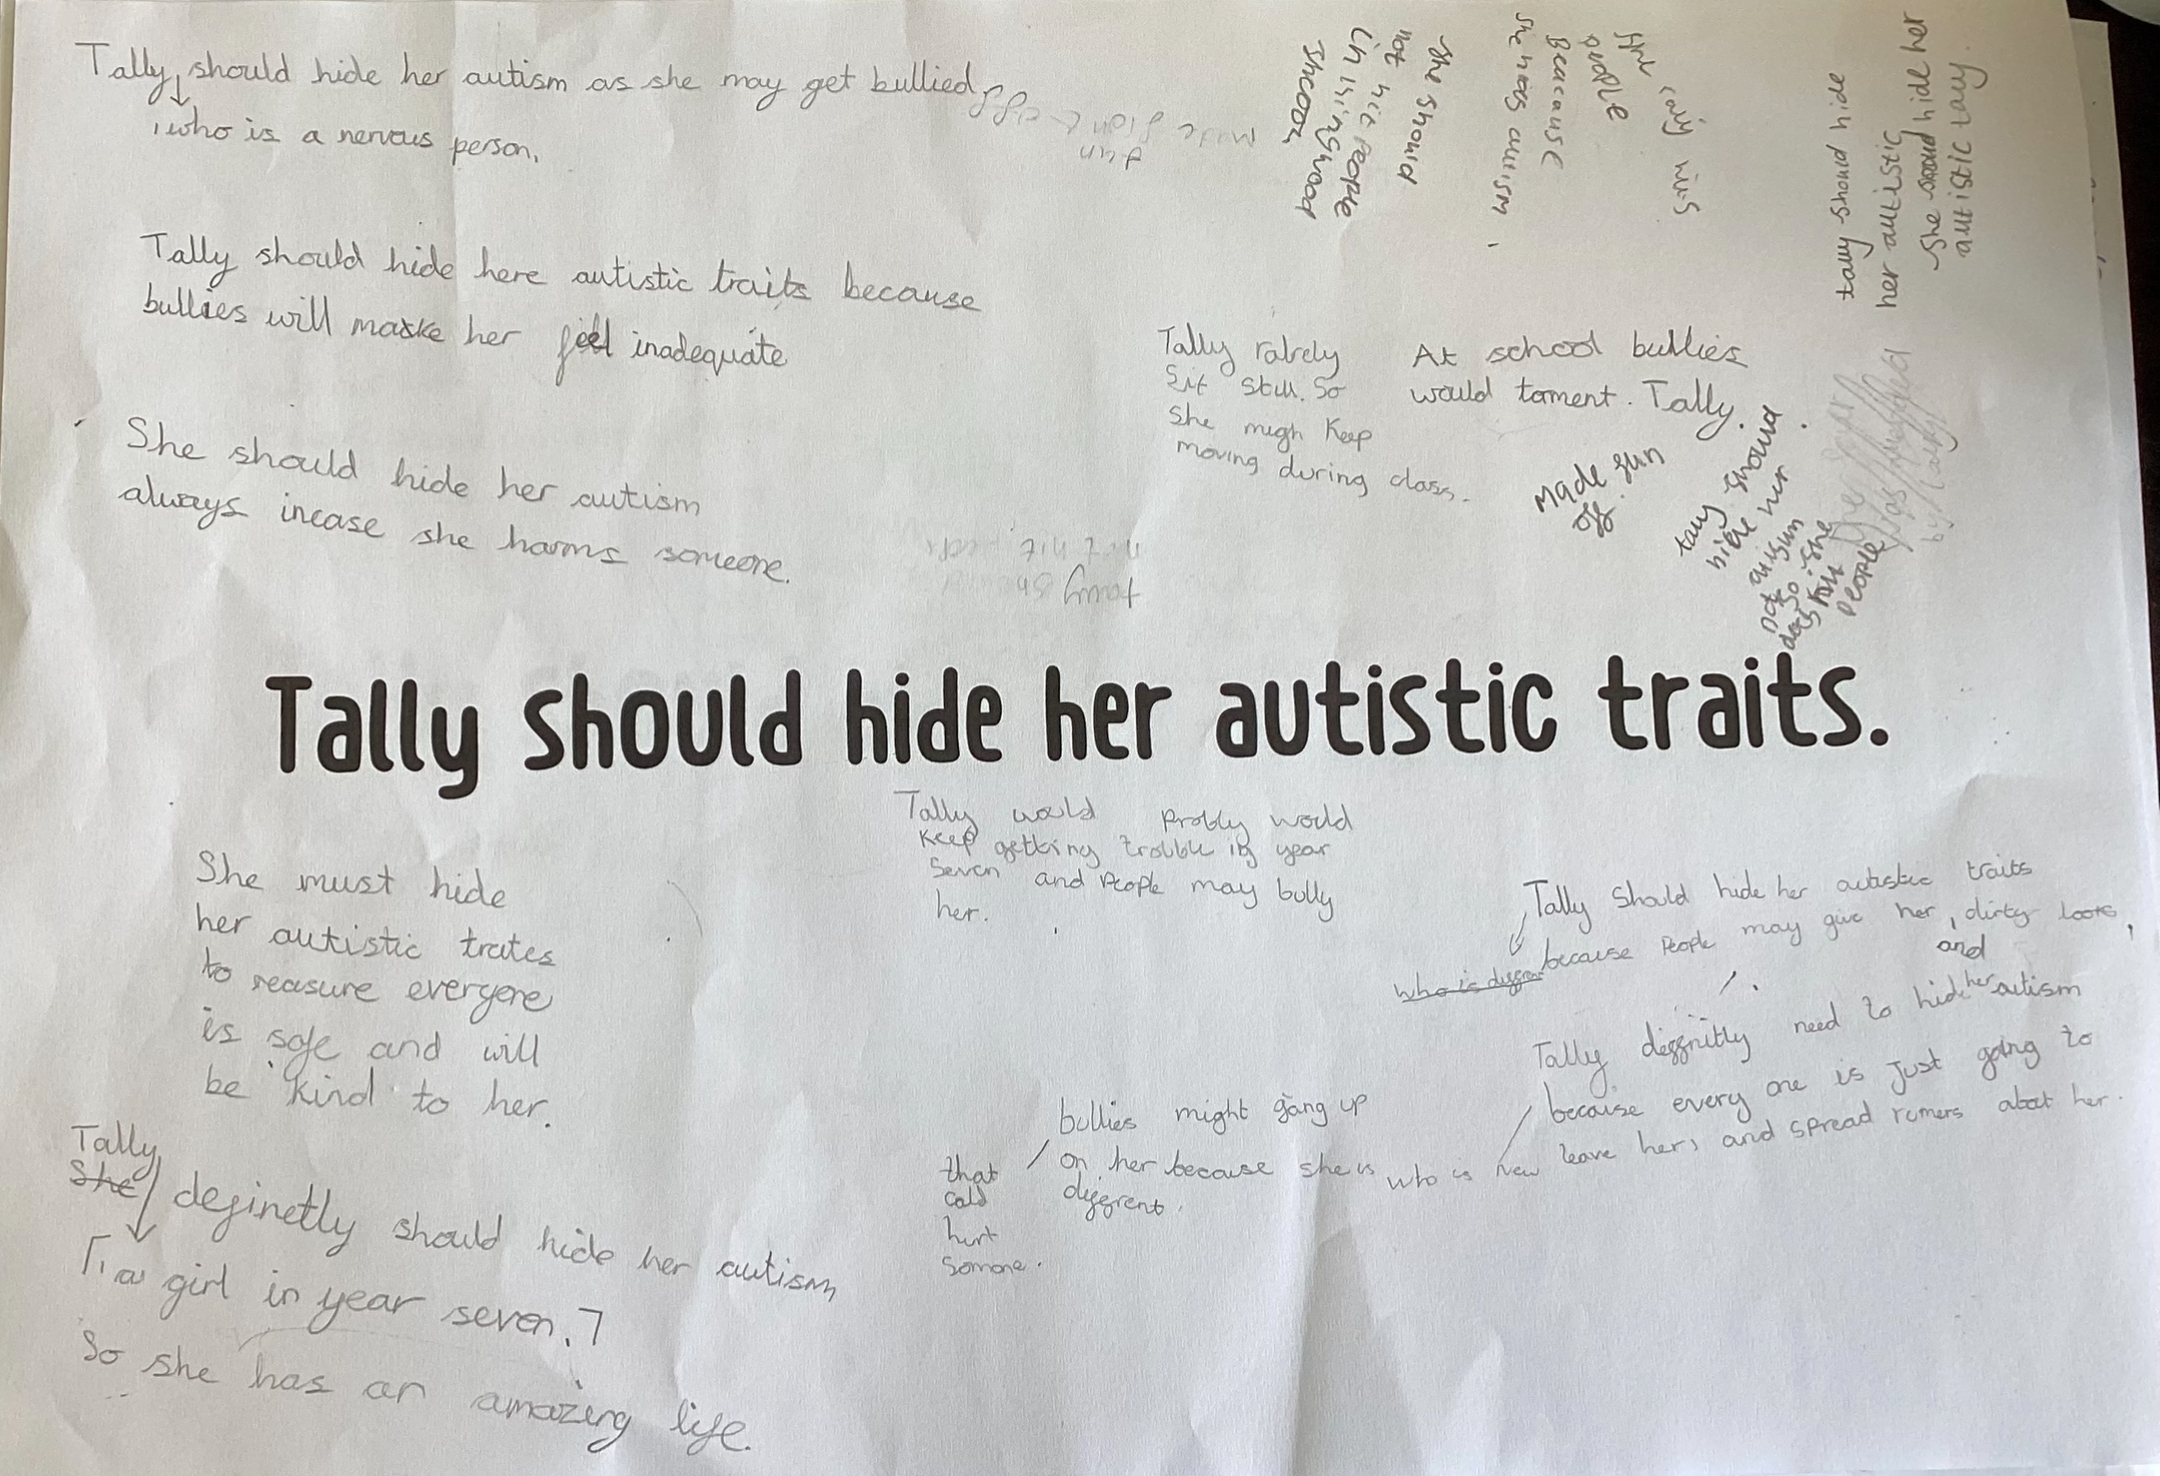 Tally, should hide her autism as she may get bullied
, who is a nervous person,
made
fun
off
Tally should hide here autistic traits because
bullies will maske her feel inadequate
She should hide her autism
always incase she harms someone.
she should
not hit people
in thingwood
people
Beacause
she has autism,
tally should hide
her autistic
she should hide her
autistic tally.
Tally rarely
Sit still. So
She migh Keep
moving during class.
At school bullies
would torment. Tally.
made fun
of.
tally should
hide her
autisum
so she
does
not
people
Tally should hide her autistic traits.
Tally would Probly world
Keep getting trobble in year
Seven and People may bully
her.
She must hide
her autistic trates
to reasure everyone
is safe and will
be kind to her.
Tally should hide her autistic traits
because People may give her, dirty looks,
and
who is diffren
Tally deffnitly need to hide her autism
because every one is Just going to
leave her, and spread rumers about her.
who is new
bullies might gang up
on her because she is
diffrent.
that
cald
hurt
Somone.
Tally
She definetly should hide her autism
, a girl in year seven.
So she has an amazing life.